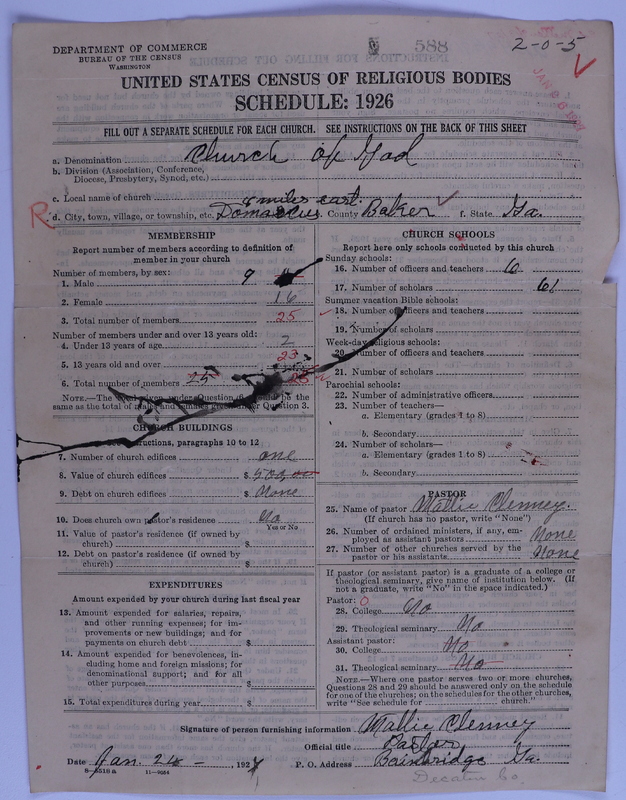 DEPARTMENT OF COMMERCE
BUREAU OF THE CENSUS
WASHINGTON
588
2-0-5
UNITED STATES CENSUS OF RELIGIOUS BODIES
SCHEDULE: 1926
FILL OUT A SEPARATE SCHEDULE FOR EACH CHURCH. SEE INSTRUCTIONS ON THE BACK OF THIS SHEET
a. Denomination Church of God
b. Division (Association, Conference,
Diocese, Presbytery, Synod, etc.)
c. Local name of church
miles east.
R d. City, town, village, or township, etc. Damascus e. County Baker f. State Ga.
MEMBERSHIP
Report number of members according to definition of
member in your church
Number of members, by sex:
1. Male 9
2. Female 16
3. Total number of members 25
Number of members under and over 13 years old:
4. Under 13 years of age 2
5. 13 years old and over 23
6. Total number of members 25 25
NOTE.—The total given under Question 6 should be the
same as the total of males and females given under Question 3.
CHURCH BUILDINGS
See instructions, paragraphs 10 to 12
7. Number of church edifices one
8. Value of church edifices $ 500.00
9. Debt on church edifices $ None
10. Does church own pastor's residence No
Yes or No
11. Value of pastor's residence (if owned by
church) $
12. Debt on pastor's residence (if owned by
church) $
EXPENDITURES
Amount expended by your church during last fiscal year
13. Amount expended for salaries, repairs,
and other running expenses; for im-
provements or new buildings; and for
payments on church debt $
14. Amount expended for benevolences, in-
cluding home and foreign missions; for
denominational support; and for all
other purposes $
15. Total expenditures during year $
CHURCH SCHOOLS
Report here only schools conducted by this church
Sunday schools:
16. Number of officers and teachers 6
17. Number of scholars 61
Summer vacation Bible schools:
18. Number of officers and teachers
19. Number of scholars
Week-day religious schools:
20. Number of officers and teachers
21. Number of scholars
Parochial schools:
22. Number of administrative officers
23. Number of teachers—
a. Elementary (grades 1 to 8)
b. Secondary
24. Number of scholars—
a. Elementary (grades 1 to 8)
b. Secondary
PASTOR
25. Name of pastor Mattie Clenney.
(If church has no pastor, write "None")
26. Number of ordained ministers, if any, em-
ployed as assistant pastors None
27. Number of other churches served by
pastor or his assistants None
If pastor (or assistant pastor) is a graduate of a college or
theological seminary, give name of institution below. (If
not a graduate, write "No" in the space indicated.)
Pastor: O
28. College No
29. Theological seminary No
Assistant pastor:
30. College No
31. Theological seminary No
NOTE.—Where one pastor serves two or more churches,
Questions 28 and 29 should be answered only on the schedule
for one of the churches; on the schedules for the other churches,
write "See schedule for church."
Signature of person furnishing information Mattie Clenney
Official title Pastor
Date Jan. 24 - , 192 P. O. Address Bainbridge Ga.
8-5518a 11-9054
Decatur Co.